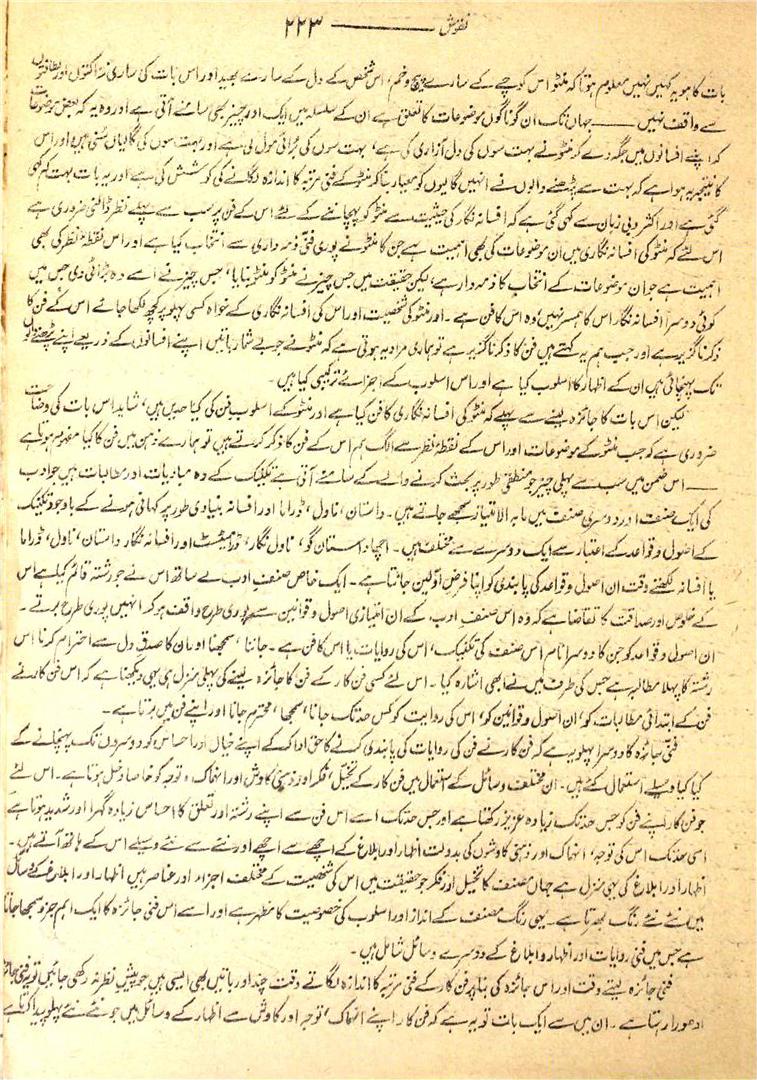 نقوش ——— ۲۲۳
بات کا ہو یہ کہیں نہیں معلوم ہوتا کہ منٹو اس کوچے کے سارے پیچ و خم، اس شخص کے دل کے سارے بھید اور اس بات کی ساری نزاکتوں اور لطافتوں
سے واقف نہیں ——— جہاں تک ان گوناگوں موضوعات کا تعلق ہے ان کے سلسلہ میں ایک اور چیز بھی سامنے آتی ہے اور وہ یہ کہ بعض موضوعات
کو اپنے افسانوں میں جگہ دے کر منٹو نے بہت سوں کی دل آزاری کی ہے، بہت سوں کی برائی مول لی ہے اور بہت سوں کی گالیاں سنی ہیں اور اس
کا نتیجہ یہ ہوا ہے کہ بہت سے پڑھنے والوں نے انہیں گالیوں کو معیار بنا کر منٹو کے فنی مرتبہ کا اندازہ لگانے کی کوشش کی ہے اور یہ بات بہت کم کہی
گئی ہے اور اکثر دبی زبان سے کہی گئی ہے کہ افسانہ نگار کی حیثیت سے منٹو کو پہچاننے کے لئے اس کے فن پر سب سے پہلے نظر ڈالنی ضروری ہے
اس لئے کہ منٹو کی افسانہ نگاری میں ان موضوعات کی بھی اہمیت ہے جن کا منٹو نے پوری فنی ذمہ داری سے انتخاب کیا ہے اور اس نقطۂ نظر کی بھی
اہمیت ہے جو ان موضوعات کے انتخاب کا ذمہ دار ہے، لیکن حقیقت میں جس چیز نے منٹو کو منٹو بنایا، جس چیز نے اسے وہ بڑائی دی جس میں
کوئی دوسرا افسانہ نگار اس کا ہمسر نہیں، وہ اس کا فن ہے ۔ اور منٹو کی شخصیت اور اس کی افسانہ نگاری کے خواہ کسی پہلو پر کچھ لکھا جائے اس کے فن کا
ذکر ناگزیر ہے اور جب ہم یہ کہتے ہیں فن کا ذکر ناگزیر ہے تو ہماری مراد یہ ہوتی ہے کہ منٹو نے جو بے شمار باتیں اپنے افسانوں کے ذریعے اپنے پڑھنے والوں
تک پہنچائی ہیں ان کے اظہار کا اسلوب کیا ہے اور اس اسلوب کے اجزائے ترکیبی کیا ہیں ۔
لیکن اس بات کا جائزہ لینے سے پہلے کہ منٹو کی افسانہ نگاری کا فن کیا ہے اور منٹو کے اسلوب فن کی کیا حدیں ہیں، شاید اس بات کی وضاحت
ضروری ہے کہ جب منٹو کے موضوعات اور اس کے نقطۂ نظر سے الگ ہم اس کے فن کا ذکر کرتے ہیں تو ہمارے ذہن میں فن کا کیا مفہوم ہوتا ہے
——— اس ضمن میں سب سے پہلی چیز جو منطقی طور پر بحث کرنے والے کے سامنے آتی ہے تکنیک کے وہ مبادیات اور مطالبات ہیں جو ادب
کی ایک صنف اور دوسری صنف میں مابہ الامتیاز سمجھے جاتے ہیں ۔ داستان، ناول، ڈراما اور افسانہ بنیادی طور پر کہانی ہونے کے باوجود تکنیک
کے اصول و قواعد کے اعتبار سے ایک دوسرے سے مختلف ہیں ۔ اچھا داستان گو، ناول نگار، ڈرامیٹسٹ اور افسانہ نگار داستان، ناول، ڈراما
یا افسانہ لکھتے وقت ان اصول و قواعد کی پابندی کو اپنا فرض اولین جانتا ہے ۔ ایک خاص صنفِ ادب سے ساتھ اس نے جو رشتہ قائم کیا ہے اس
کے خلوص اور صداقت کا تقاضا ہے کہ وہ اس صنفِ ادب کے ان امتیازی اصول و قوانین سے پوری طرح واقف ہو کر انہیں پوری طرح برتے ۔
ان اصول و قواعد کو جن کا دوسرا نام اس صنف کی تکنیک، اس کی روایات یا اس کا فن ہے ۔ جاننا، سمجھنا اور ان کا صدقِ دل سے احترام کرنا اس
رشتہ کا پہلا مطالبہ ہے جس کی طرف میں نے ابھی اشارہ کیا ۔ اس لئے کسی فن کار کے فن کا جائزہ لینے کی پہلی منزل ہی یہی دیکھنا ہے کہ اس فن کار نے
فن کے ابتدائی مطالبات کو، ان اصول و قوانین کو، اس کی روایت کو کس حد تک جانا، سمجھا، محترم جانا اور اپنے فن میں برتا ہے ۔
فنی جائزہ کا دوسرا پہلو یہ ہے کہ فن کار نے فن کی روایات کی پابندی کرنے کا حق ادا کر کے اپنے خیال اور احساس کو دوسروں تک پہنچانے کے
کیا کیا وسیلے استعمال کئے ہیں ۔ ان مختلف وسائل کے استعمال میں فن کار کے تخیل، فکر اور ذہنی کاوش اور انہماک و توجہ کو خاصا دخل ہوتا ہے ۔ اس لئے
جو فن کار اپنے فن کو جس حد تک زیادہ عزیز رکھتا ہے اور جس حد تک اسے اس فن سے اپنے رشتہ اور تعلق کا احساس زیادہ گہرا اور شدید ہوتا ہے
اسی حد تک اس کی توجہ، انہماک اور ذہنی کاوشوں کی بدولت اظہار اور ابلاغ کے اچھے سے اچھے اور نئے سے نئے وسیلے اس کے ہاتھ آتے ہیں ۔
اظہار اور ابلاغ کی یہی منزل ہے جہاں مصنف کا تخیل اور فکر جو حقیقت میں اس کی شخصیت کے مختلف اجزاء اور عناصر ہیں اظہار اور ابلاغ کے وسائل
میں نئے نئے رنگ بھرتا ہے ۔ یہی رنگ مصنف کے انداز اور اسلوب کی خصوصیت کا مظہر ہے اور اسے اس فنی جائزہ کا ایک اہم جزو سمجھا جاتا
ہے جس میں فنی روایات اور اظہار و ابلاغ کے دوسرے وسائل شامل ہیں ۔
فنی جائزہ لیتے وقت اور اس جائزہ کی بنا پر فن کار کے فنی مرتبہ کا اندازہ لگاتے وقت چند اور باتیں بھی ایسی ہیں جو پیشِ نظر نہ رکھی جائیں تو یہ فنی جائزہ
ادھورا رہتا ہے ۔ ان میں سے ایک بات تو یہ ہے کہ فن کار اپنے انہماک، توجہ اور کاوش سے اظہار کے وسائل میں جو نئے نئے پہلو پیدا کرتا ہے